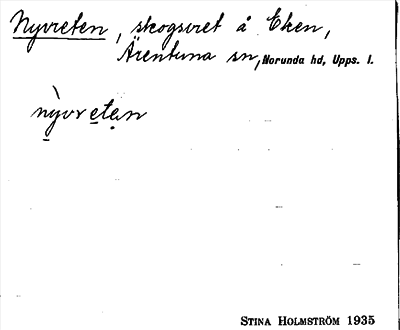 Nyvreten, skogsvret å Eken,
Ärentuna sn, Norunda hd, Upps. l.
nỳvretan
STINA HOLMSTRÖM 1935